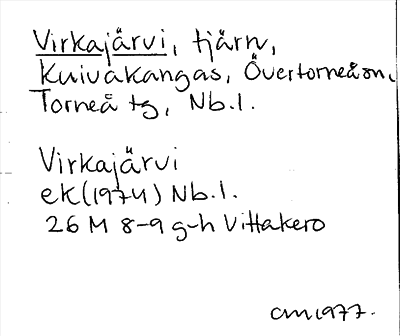 Virkajärvi, tjärn,
Kuivakangas, Övertorneå sn,
Torneå tg, Nb.l.
Virkajärvi
ek(1974) Nb.l.
26 M 8-9 g-h Vittakero
CM 1977.